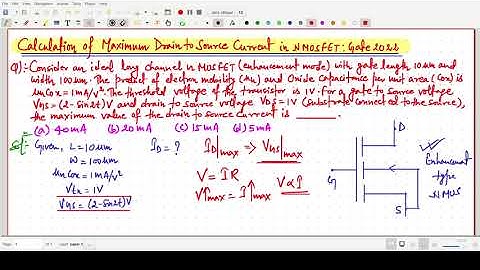 Calculation of Maximum Drain to Source Current in NMOSFET: Gate 2022
Q): Consider an ideal long channel n MOSFET (enhancement mode) with gate length 10μm and
width 100μm. The product of electron mobility (μn) and Oxide capacitance per unit area (Cox) is
μnCox = 1mA/V². The threshold voltage of the transistor is 1V. For a gate to source voltage
VGS = (2-sin2t)V and drain to source voltage VDS = 1V (substrate connected to the source),
the maximum value of the drain to source current is ______.
(a) 40mA (b) 20mA (c) 15mA (d) 5mA
Sol: Given, L = 10μm ID = ?
W = 100μm
μnCox = 1mA/V²
Vth = 1V
VGS = (2-sin2t)V
ID|max => VGS|max
V = IR
V↑max = I↑max V∝I
D
G
S
Enhancement
type
NMOS